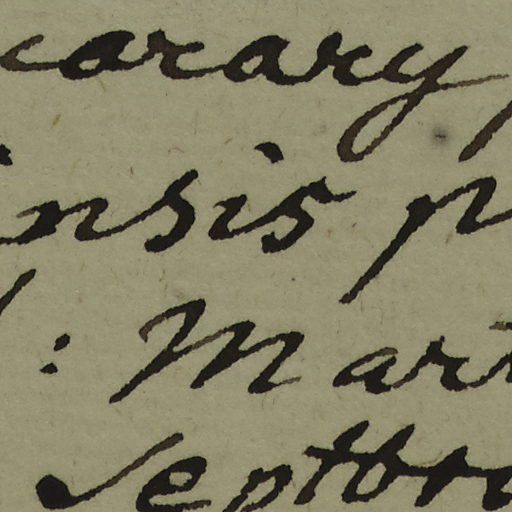 carary
insis p
: Mart
Septbr